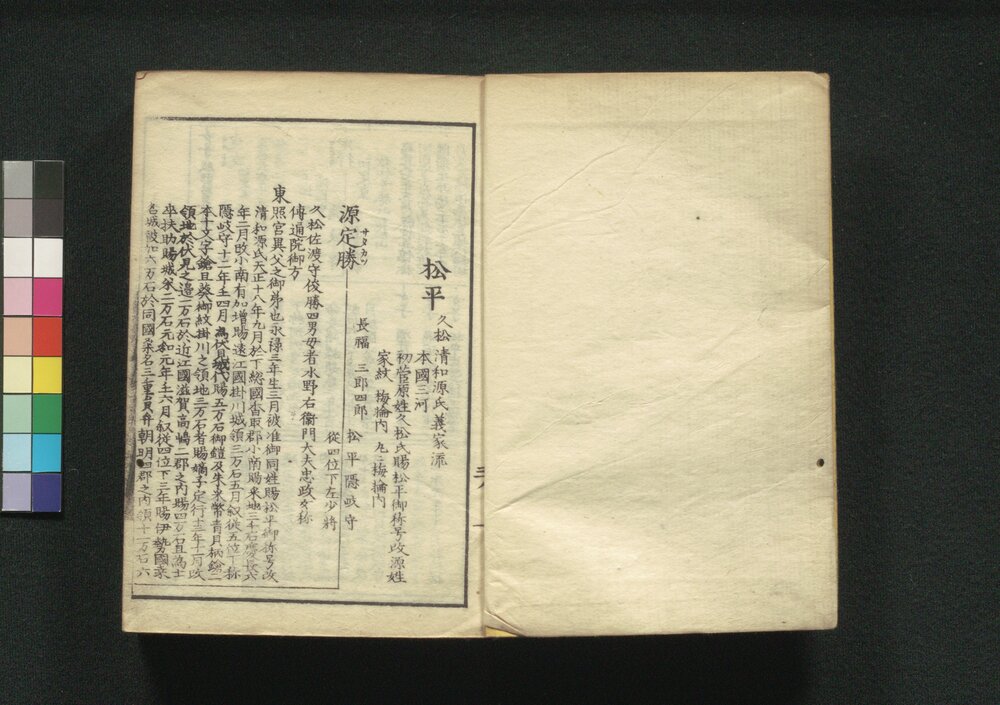 松平 久松
清和源氏義家流
本國三河
初菅原姓久松氏賜松平御称号改源姓
家紋 梅輪内 丸ニ梅輪内
源定勝 サタカツ
長福 三郎四郎 松平隠岐守
從四位下左少將
久松佐渡守俊勝四男母者水野右衛門大夫忠政女称
傳通院御方
東照宮異父之御弟也永禄三年生三月被准御同姓賜松平御称号改
清和源氏天正十八年九月於下総國香取郡小南賜釆地三千石慶長六
年二月改小南有加増賜遠江國掛川城領三万石五月叙從五位下称
隠岐守十二年壬四月為伏見城代賜五万石御鎧及朱釆幣青貝柄鎗二
本十文字鎗且葵御紋掛川之領地三万石者賜嫡子定行十二年十一月改
領地於伏見之邉二万石於近江國滋賀高嶋二郡之内賜四万石且為士
卒扶助賜城米二万石元和元年壬六月叙從四位下三年賜伊勢國桒
名城被加六万石於同國桒名三重員弁朝明四郡之内領十一万石六